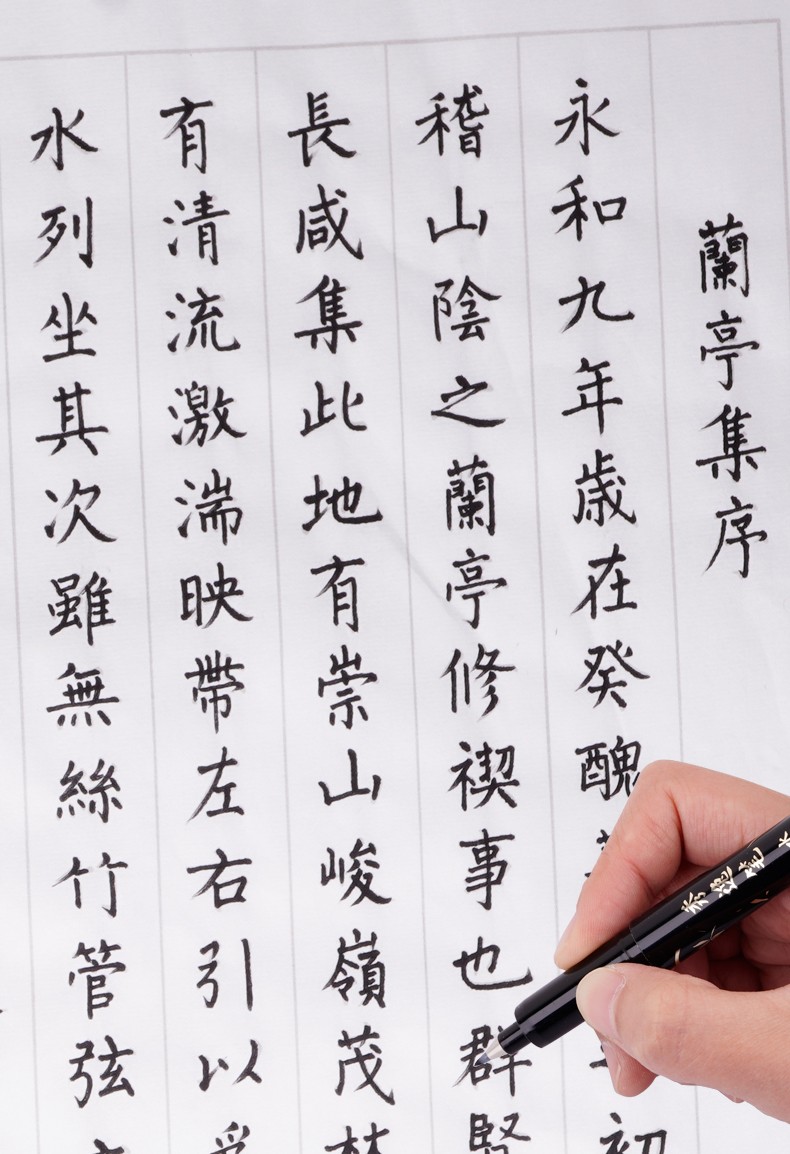 蘭亭集序
永和九年歲在癸醜初
稽山陰之蘭亭修禊事也群賢
長咸集此地有崇山峻嶺茂林
有清流激湍映帶左右引以
水列坐其次雖無絲竹管弦